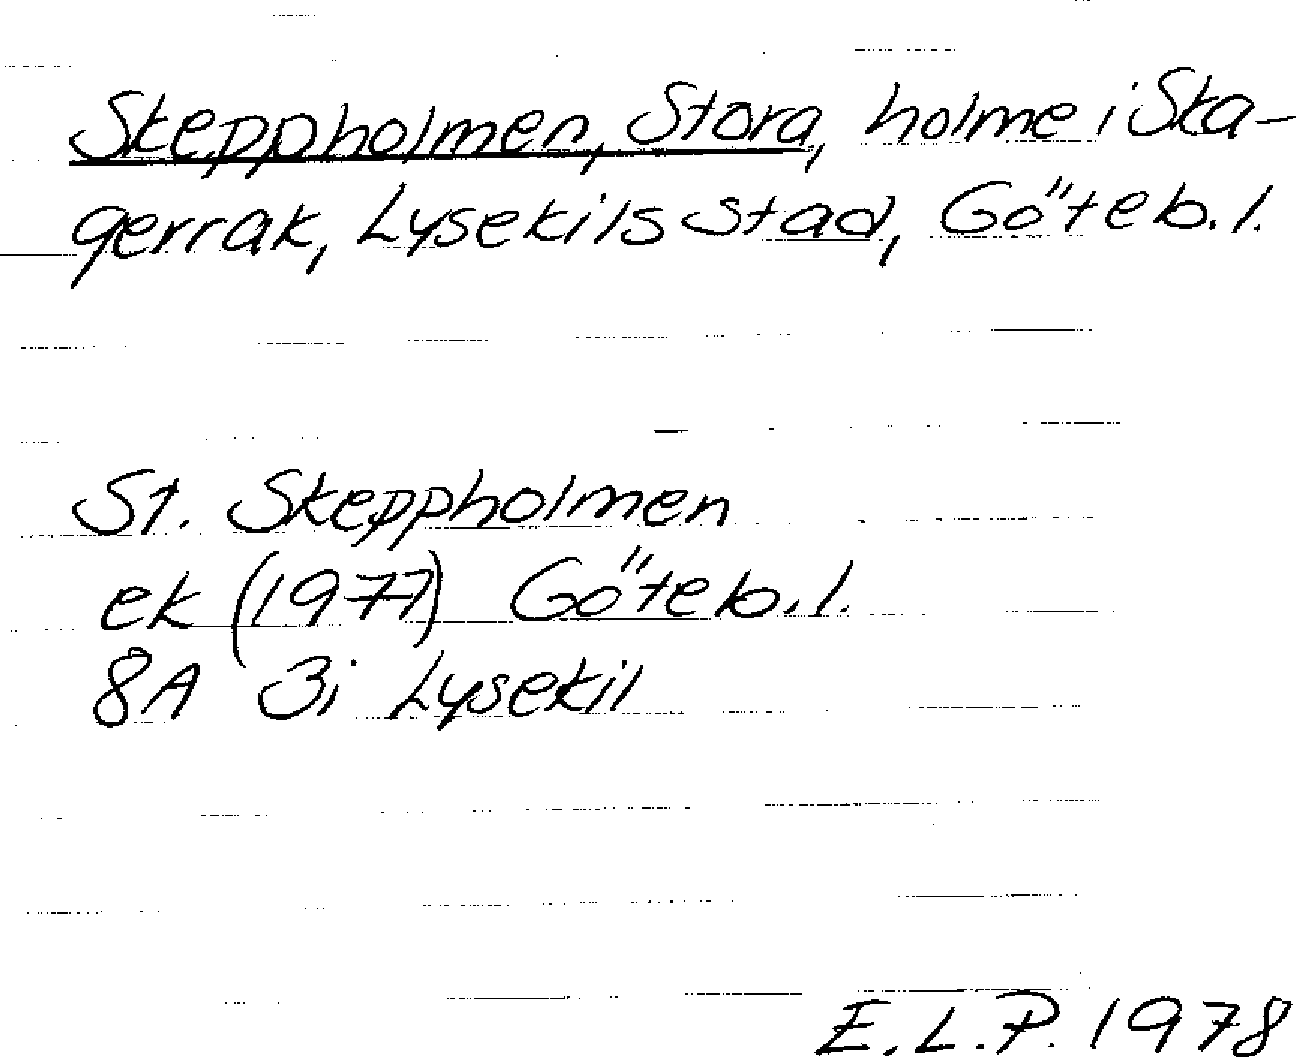 Skeppholmen, Stora, holme i Ska-
gerrak, Lysekils stad, Göteb. l.
St. Skeppholmen
ek (1977) Göteb. l.
8A 3i Lysekil
E. L. P. 1978